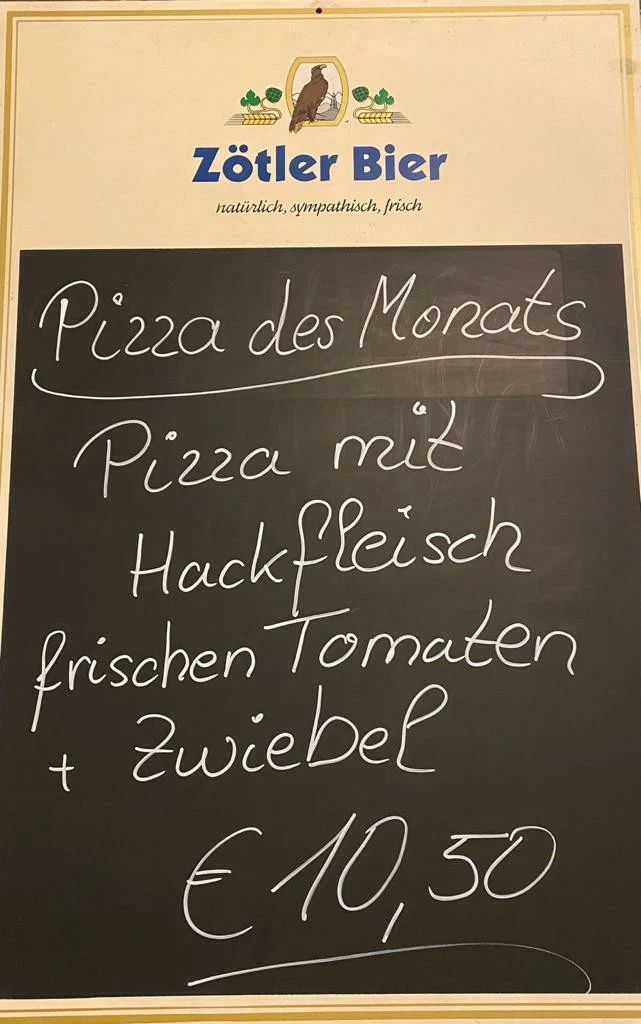 Zötler Bier
natürlich, sympathisch, frisch
Pizza des Monats
Pizza mit
Hackfleisch
frischen Tomaten
+ Zwiebel
€ 10,50